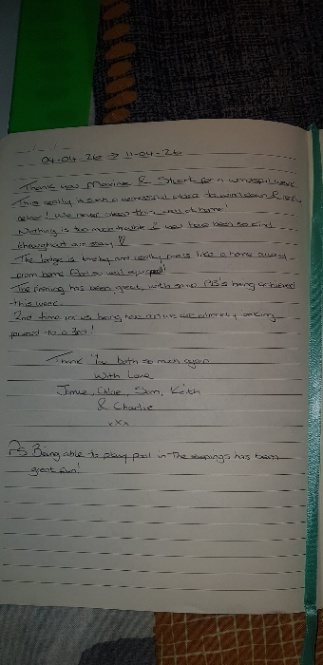 04-04-26 → 11-04-26
Thank you Maxine & Stuart for a wonderful week.
This really is such a wonderful place to & 
never! We never sleep this well at home!
Nothing is too much trouble & you have been so kind
throughout our stay
The lodge is lovely and really feels like a home away
from home and so well equipped!
The fishing has been great, with some PB's being achieved
this week.
2nd time for us being here and we are already looking
forward to a 3rd!
Thank You both so much again
With Love
Jamie, Chloe, Sam, Keith
& Charlie
xXx
PS Being able to play pool in the evenings has been
great fun!